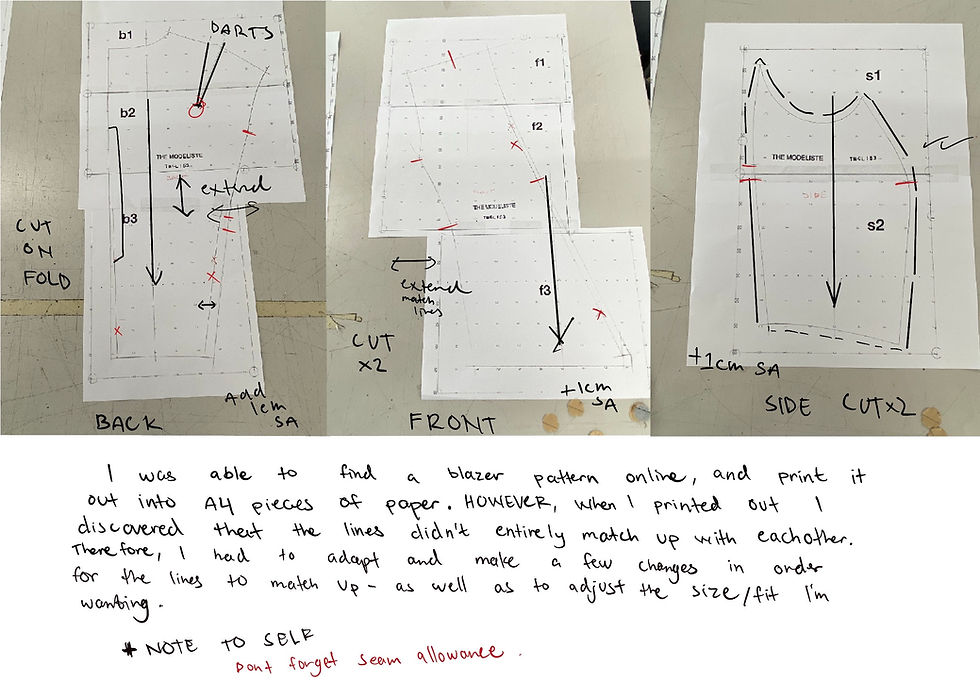 b1
DARTS
b2
THE MODELISTE
TMCL 153
extend
b3
CUT
ON
FOLD
Add
1cm
SA
BACK
f1
f2
THE MODELISTE
TMCL 153
extend
match
lines
f3
CUT
x2
+1cm
SA
FRONT
s1
THE MODELISTE
TMCL 153
SIDE
s2
+1cm SA
SIDE CUT x2
I was able to find a blazer pattern online, and print it
out into A4 pieces of paper. HOWEVER, when I printed out I
discovered that the lines didn't entirely match up with eachother.
Therefore, I had to adapt and make a few changes in order
for the lines to match up - as well as to adjust the size/fit I'm
wanting.
* NOTE TO SELF
Dont forget seam allowance.